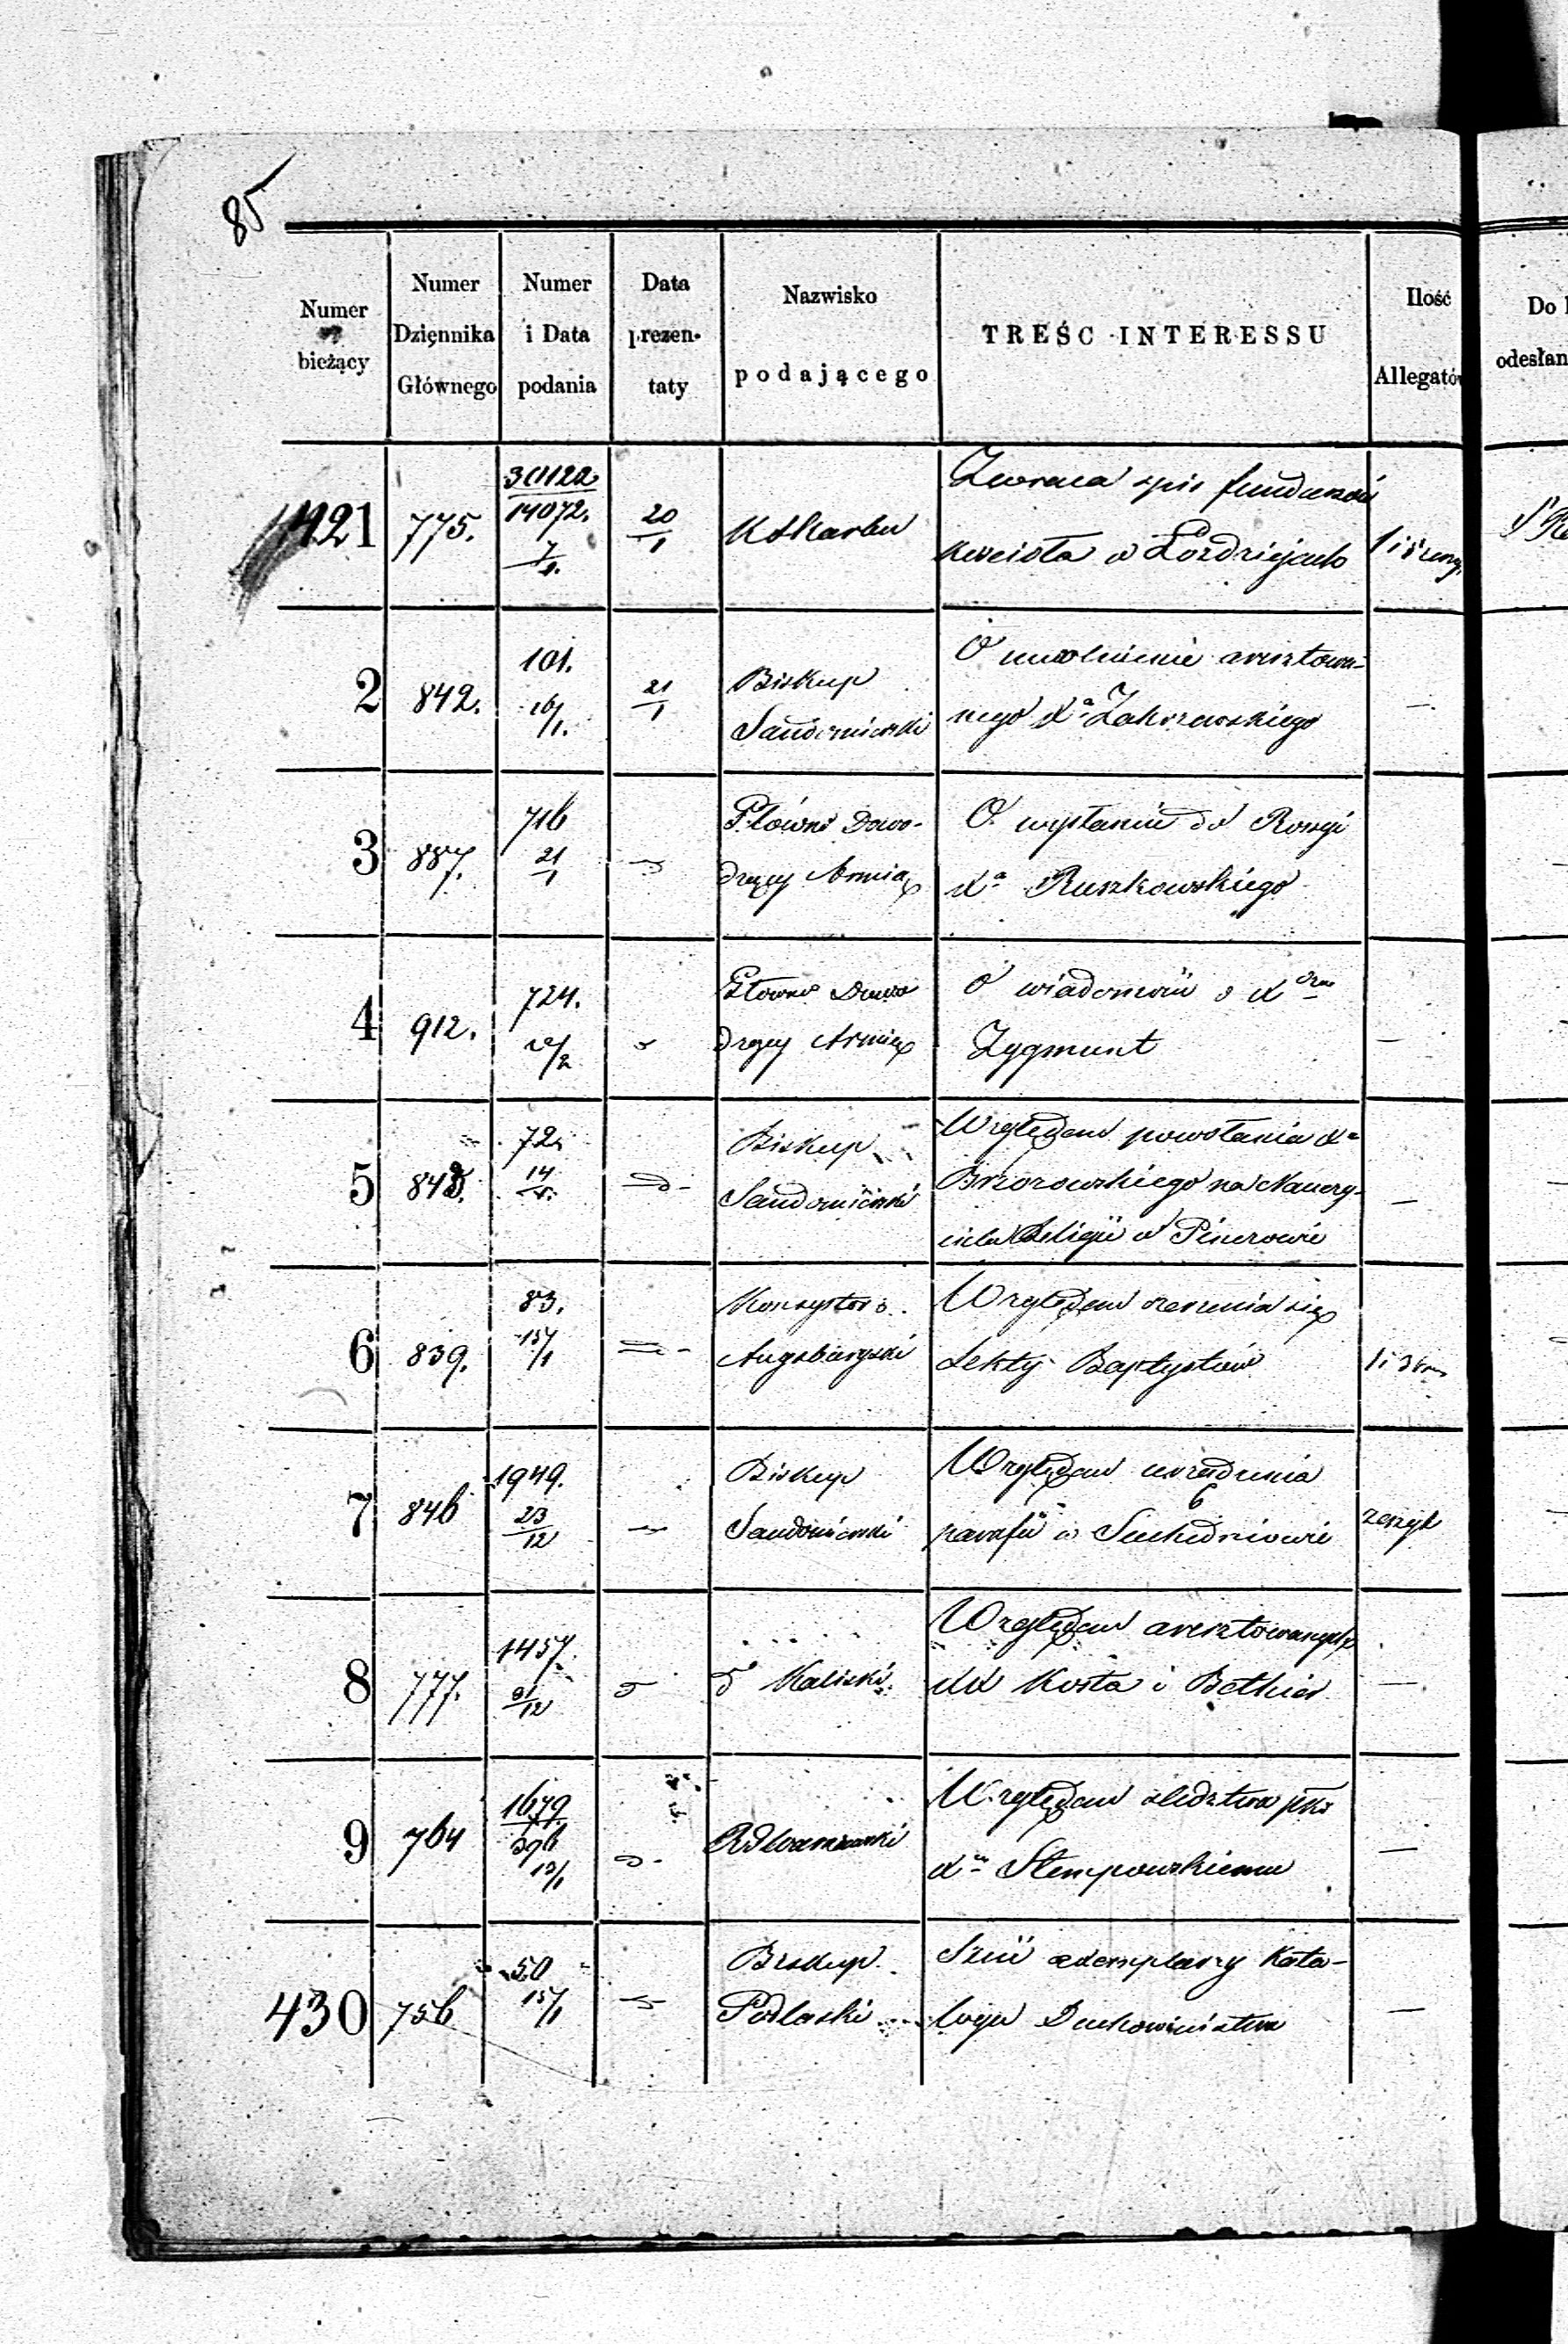 85
Numer bieżący
Numer Dzięnnika Głównego
Numer i Data podania
Data prezen- taty
Nazwisko podającego
TREŚC INTERESSU
Ilość Allegatów
Do
odesłan
421 775. 14072. 20/1 K Skarbu
Zwraca spis funduszów
kościoła w Łoździejach
2 842. 101. 16/1. 21/1 Biskup
Sandomierski
O uwolnienie aresztowa-
nego Xa Zakrzewskiego —
3 887. 716 21/1 Główno Dowo-
dzący Armią
O wysłaniu do Rossyi
Xa Ruszkowskiego
4 912. 724. Główno Dowo
dzący Armią
O wiadomość o X
Zygmunt —
5 843. 72. 14/1. Biskup
Sandomierski
Względem powołania Xa
Brzozowskiego na Nauczy-
ciela Religii w Pinczowie —
6 839. 83. 15/1 Konsystorz
Augsburgski
Względem szerzenia się
Sekty Baptystów
7 846 1949. 23/12 Biskup
Sandomierski
Względem urządzenia
parafii w Suchedniowie
6 zeszyt
8 777. 1457. 31/12 do Kaliski
Względem aresztowanych
XX Kosta i Bethier —
9 764 1679. 396 13/1 RG Warszawski
Względem śledztwa pko
Xu Stempowskiemu —
430 756 50 15/1 Biskup
Podlaski
exemplarzy Kata-
logu Duchowieństwa —